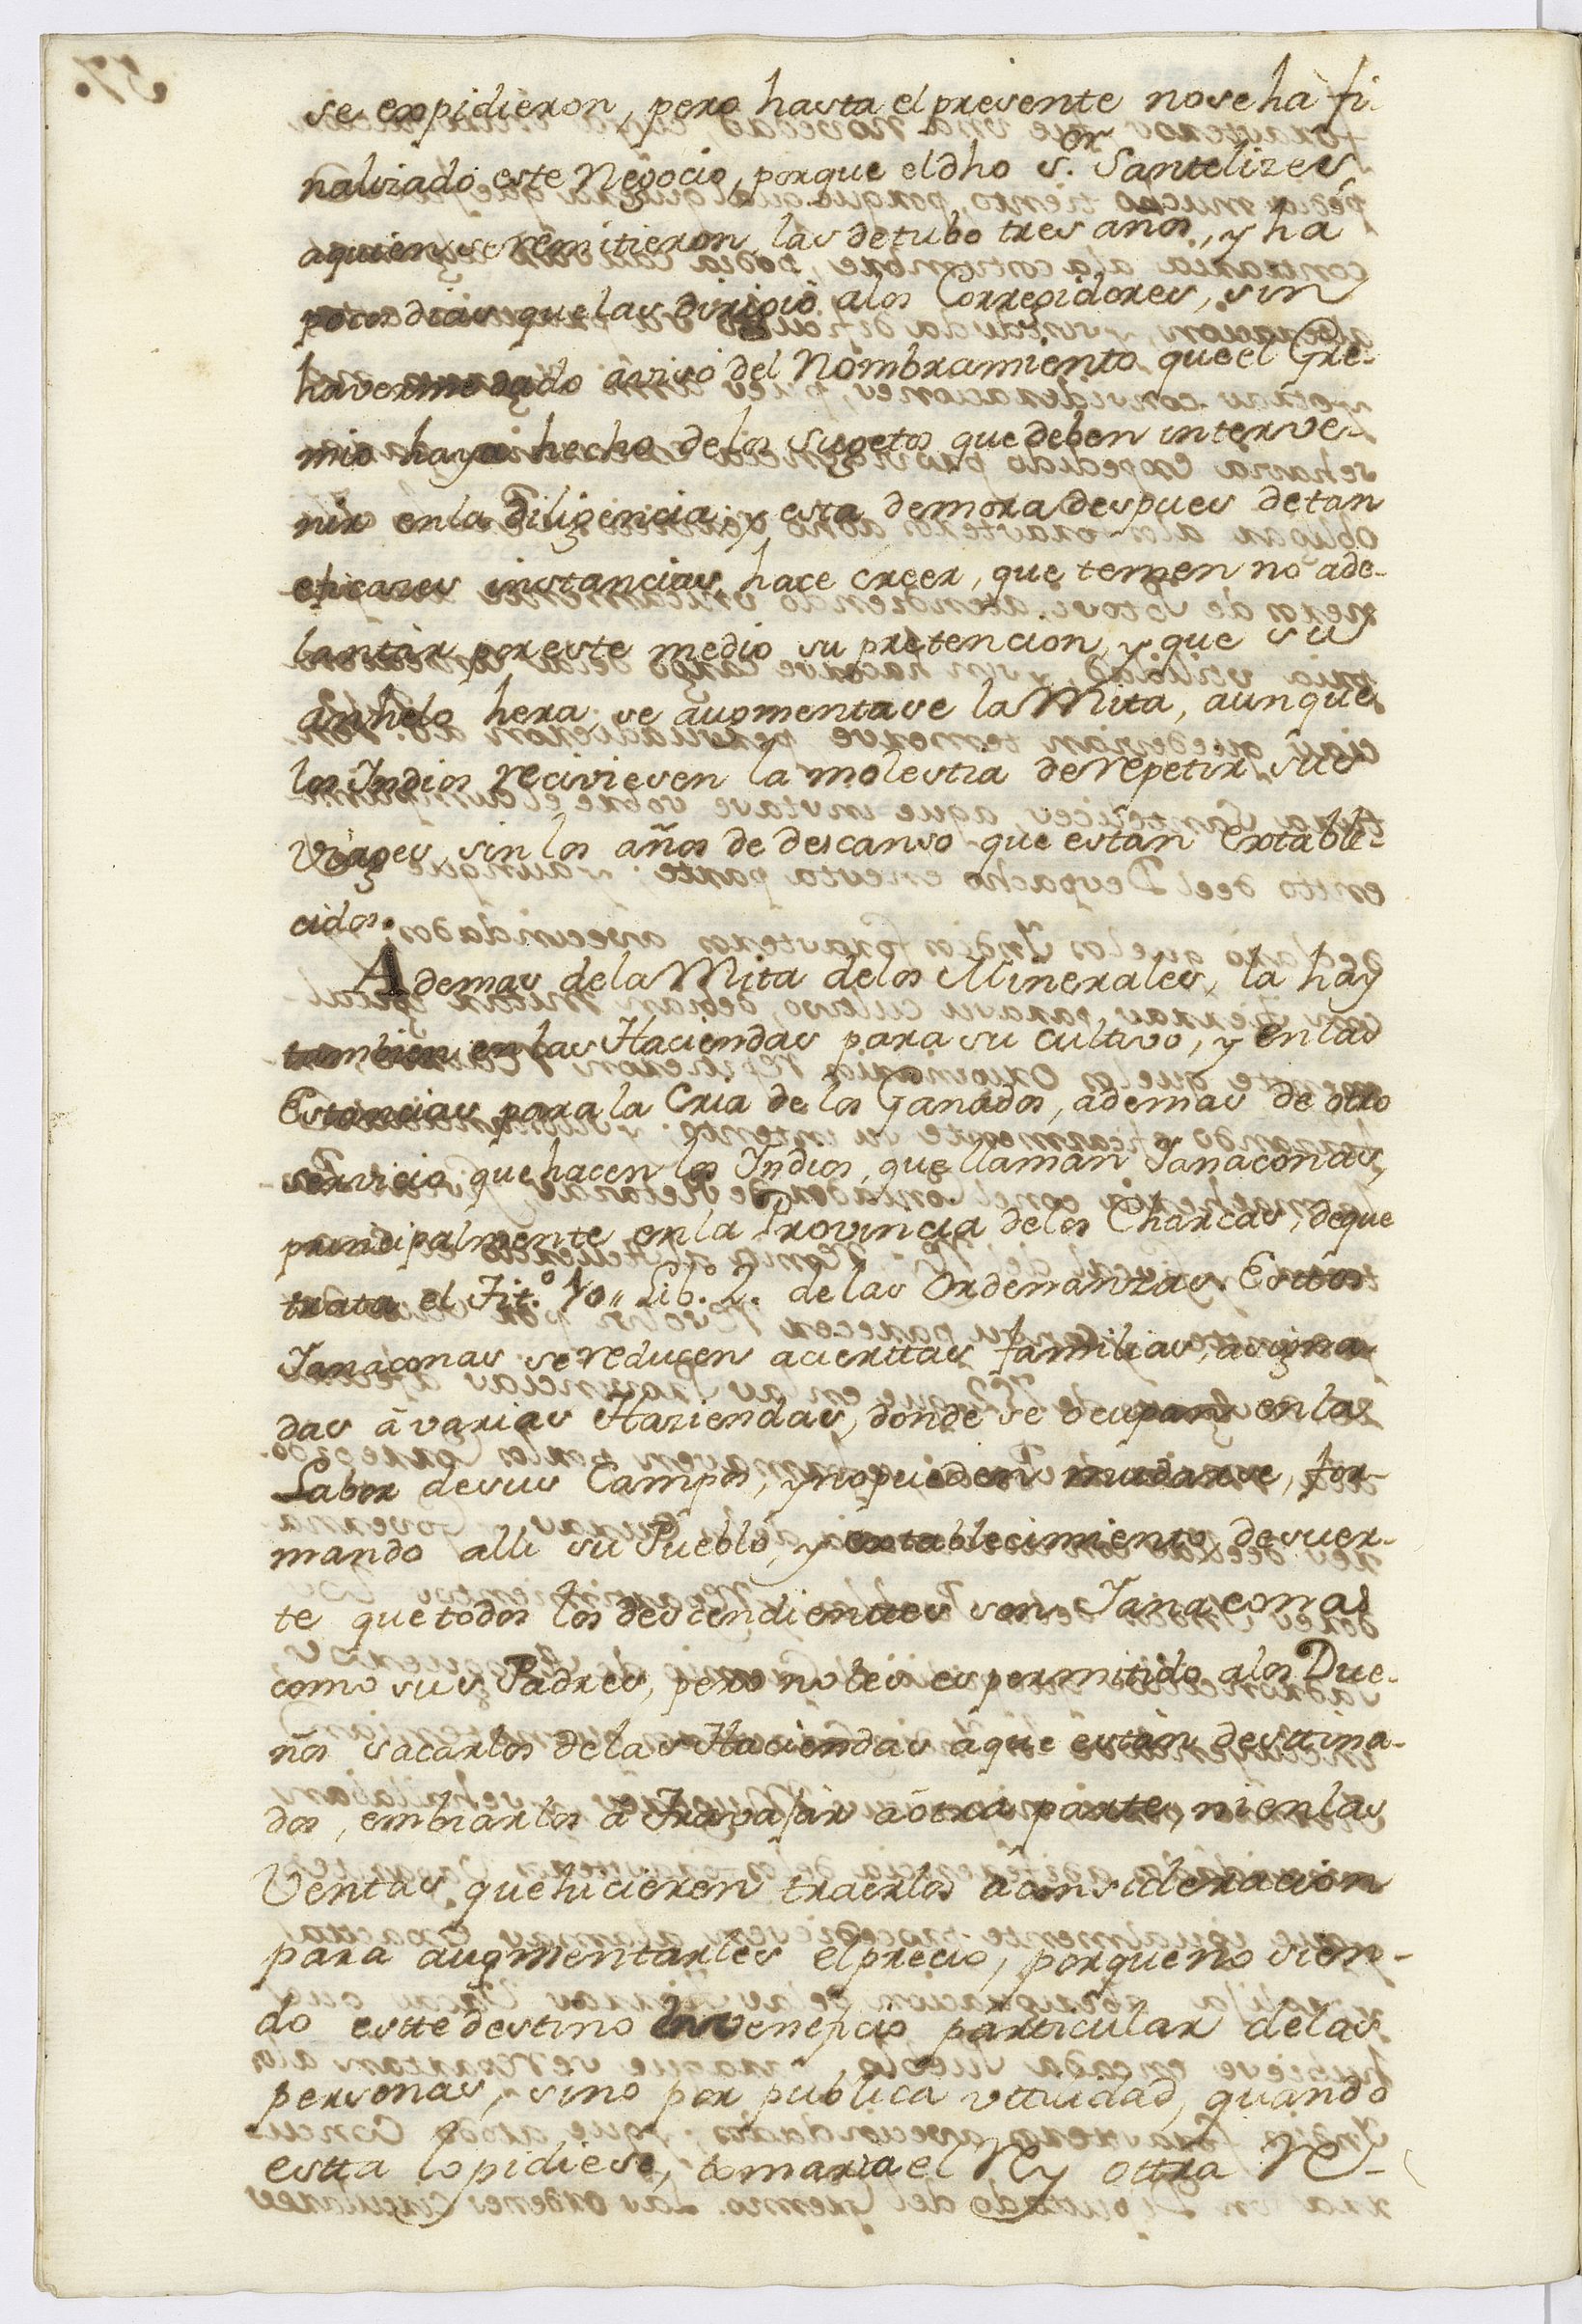 se expidieron, pero hasta el presente no se ha fi-
nalizado este Negocio, porque el dho s.or Santelizes,
a quien se remitieron, las detubo tres años, y ha
pocos dias que las dirigió a los Corregidores, sin
haverme dado aviso del Nombramiento que el Gre-
mio haya hecho de los Sugetos que deben interve-
nir en la Diligencia; y esta demora despues de tan
eficazes instancias, hace creer, que temen no ade-
lantar por este medio su pretencion, y que su
anhelo hera, se augmentase la Mita, aunque
los Indios reciviesen la molestia de repetir sus
Viages, sin los años de descanso que estan extable-
cidos.
Ademas de la Mita de los Minerales, la hay
tambien en las Haciendas para su cultivo, y en las
Estancias para la Cria de los Ganados, ademas de otro
servicio que hacen los Indios, que llaman Yanaconas,
principalmente en la Provincia de los Charcas, de que
trata el Tit.º 10,, Lib.º 2. de las Ordenanzas. Esttos
Yanaconas se reducen a ciertas familias, asigna-
das á varias Haziendas, donde se ocupan en la
Labor de sus Campos, y no pueden mudarse, for-
mando alli su Pueblo, y extablecimiento, de suer-
te que todos los descendienttes son Yanaconas
como sus Padres, pero no les es permitido a los Due-
ños sacarlos de las Haciendas á que estan desttina-
dos, embiarlos á Travajar á otra parte, ni en las
Ventas que hicieren traerlos á consideracion
para augmentarles el precio, porque no sien-
do estte destino en venefício particular de las
personas, sino por publica vttilidad, quando
estta lo pidiese, tomaria el Rey ottra